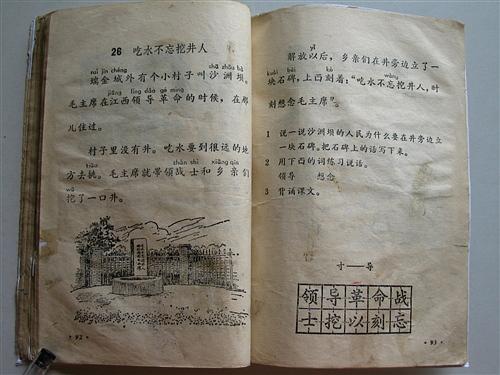 26 吃水不忘挖井人
ruì jīn chéng
shā zhōu bà
瑞金城外有个小村子叫沙洲坝。
jiāng lǐng dǎo gé mìng
毛主席在江西领导革命的时候，在那
儿住过。
村子里没有井。吃水要到很远的地
tiāo zhàn shì xiāng qīn
方去挑。毛主席就带领战士和乡亲们
wā
挖了一口井。
·92·
解放以后，乡亲们在井旁边立了一
kuài bēi kè wàng
块石碑，上面刻着：“吃水不忘挖井人，时
刻想念毛主席”。
1 说一说沙洲坝的人民为什么要在井旁边立
一块石碑。把石碑上的话写下来。
2 用下面的词练习说话。
领导 想念
3 背诵课文。
寸——导
领导革命战
士挖以刻忘
·93·